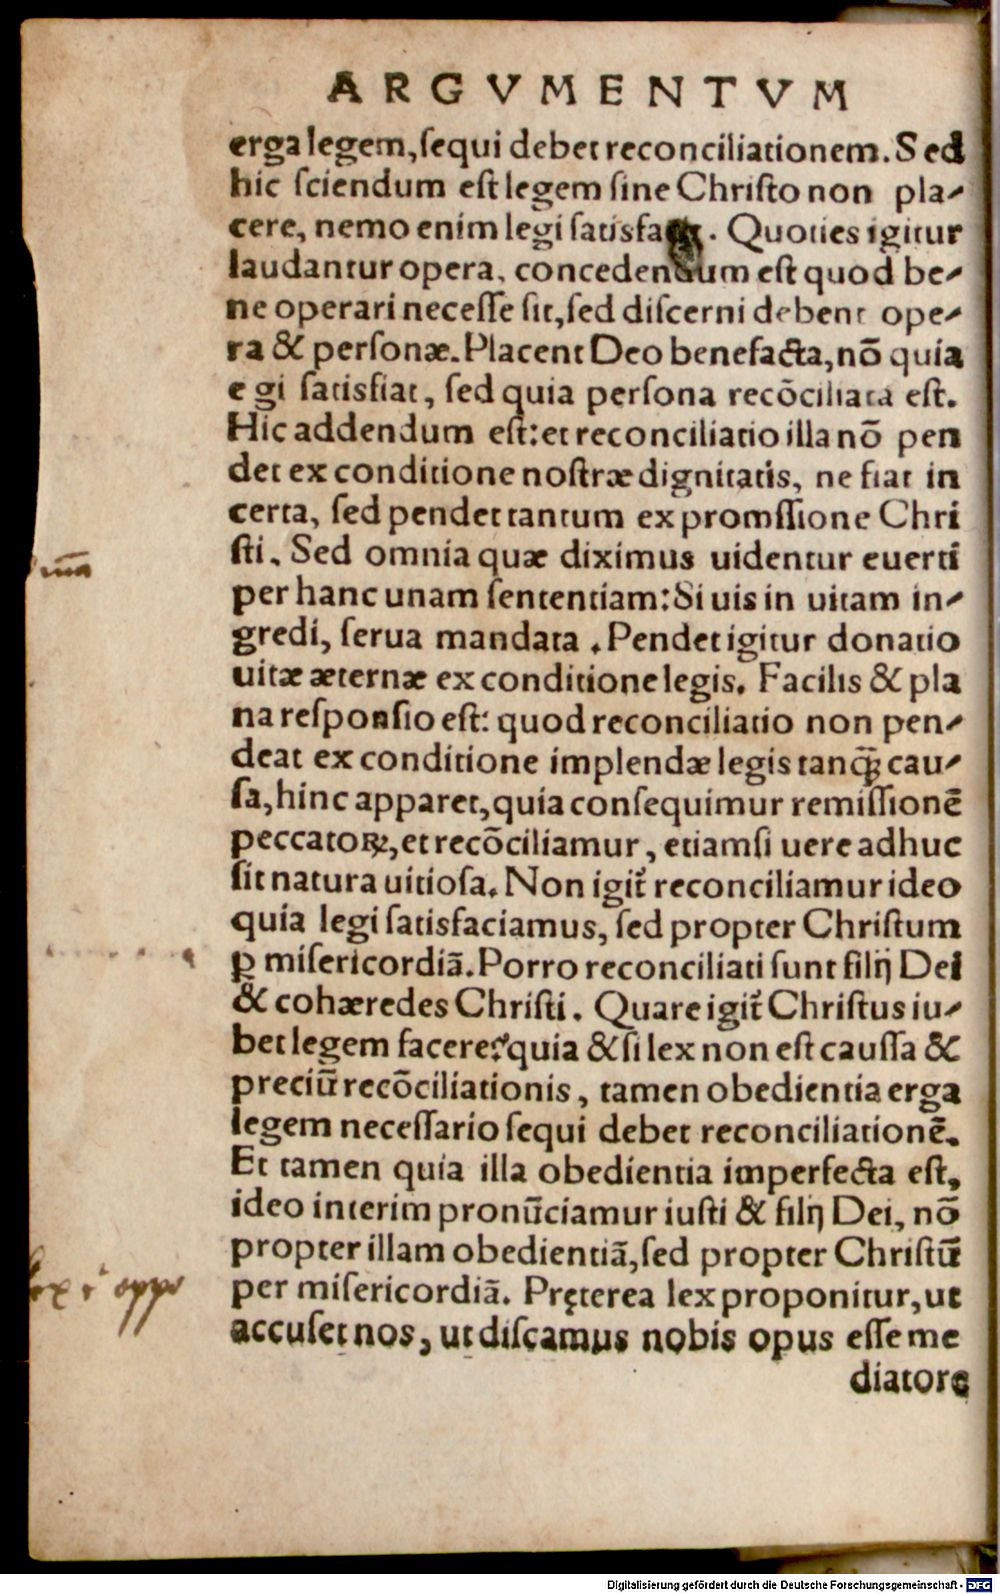 ARGVMENTVM
erga legem, ſequi debet reconciliationem. Sed
hic ſciendum eſt legem ſine Chriſto non pla-
cere, nemo enim legi ſatisfacit. Quoties igitur
laudantur opera, concedendum eſt quod be-
ne operari neceſſe ſit, ſed diſcerni debent ope-
ra & perſonæ. Placent Deo benefacta, nõ quia
e gi ſatisfiat, ſed quia perſona recõciliata eſt.
Hic addendum eſt: et reconciliatio illa nõ pen
det ex conditione noſtræ dignitatis, ne fiat in
certa, ſed pendet tantum ex promſſione Chri
ſti. Sed omnia quæ diximus uidentur euerti
per hanc unam ſententiam: Si uis in uitam in-
gredi, ſerua mandata. Pendet igitur donatio
uitæ æternæ ex conditione legis. Facilis & pla
na reſponſio eſt: quod reconciliatio non pen-
deat ex conditione implendæ legis tanq̃ꝫ cau-
ſa, hinc apparet, quia conſequimur remiſſionẽ
peccatoꝝ, et recõciliamur, etiamſi uere adhuc
ſit natura uitioſa. Non igit᷑ reconciliamur ideo
quia legi ſatisfaciamus, ſed propter Chriſtum
ꝑ miſericordiã. Porro reconciliati ſunt filij Dei
& cohæredes Chriſti. Quare igit᷑ Chriſtus iu-
bet legem facere? quia & ſi lex non eſt cauſſa &
preciũ recõciliationis, tamen obedientia erga
legem neceſſario ſequi debet reconciliationẽ.
Et tamen quia illa obedientia imperfecta eſt,
ideo interim pronũciamur iuſti & filij Dei, nõ
propter illam obedientiã, ſed propter Chriſtũ
per miſericordiã. Pręterea lex proponitur, ut
accuſet nos, ut diſcamus nobis opus eſſe me
diatore
Digitalisierung gefördert durch die Deutsche Forschungsgemeinschaft - DFG